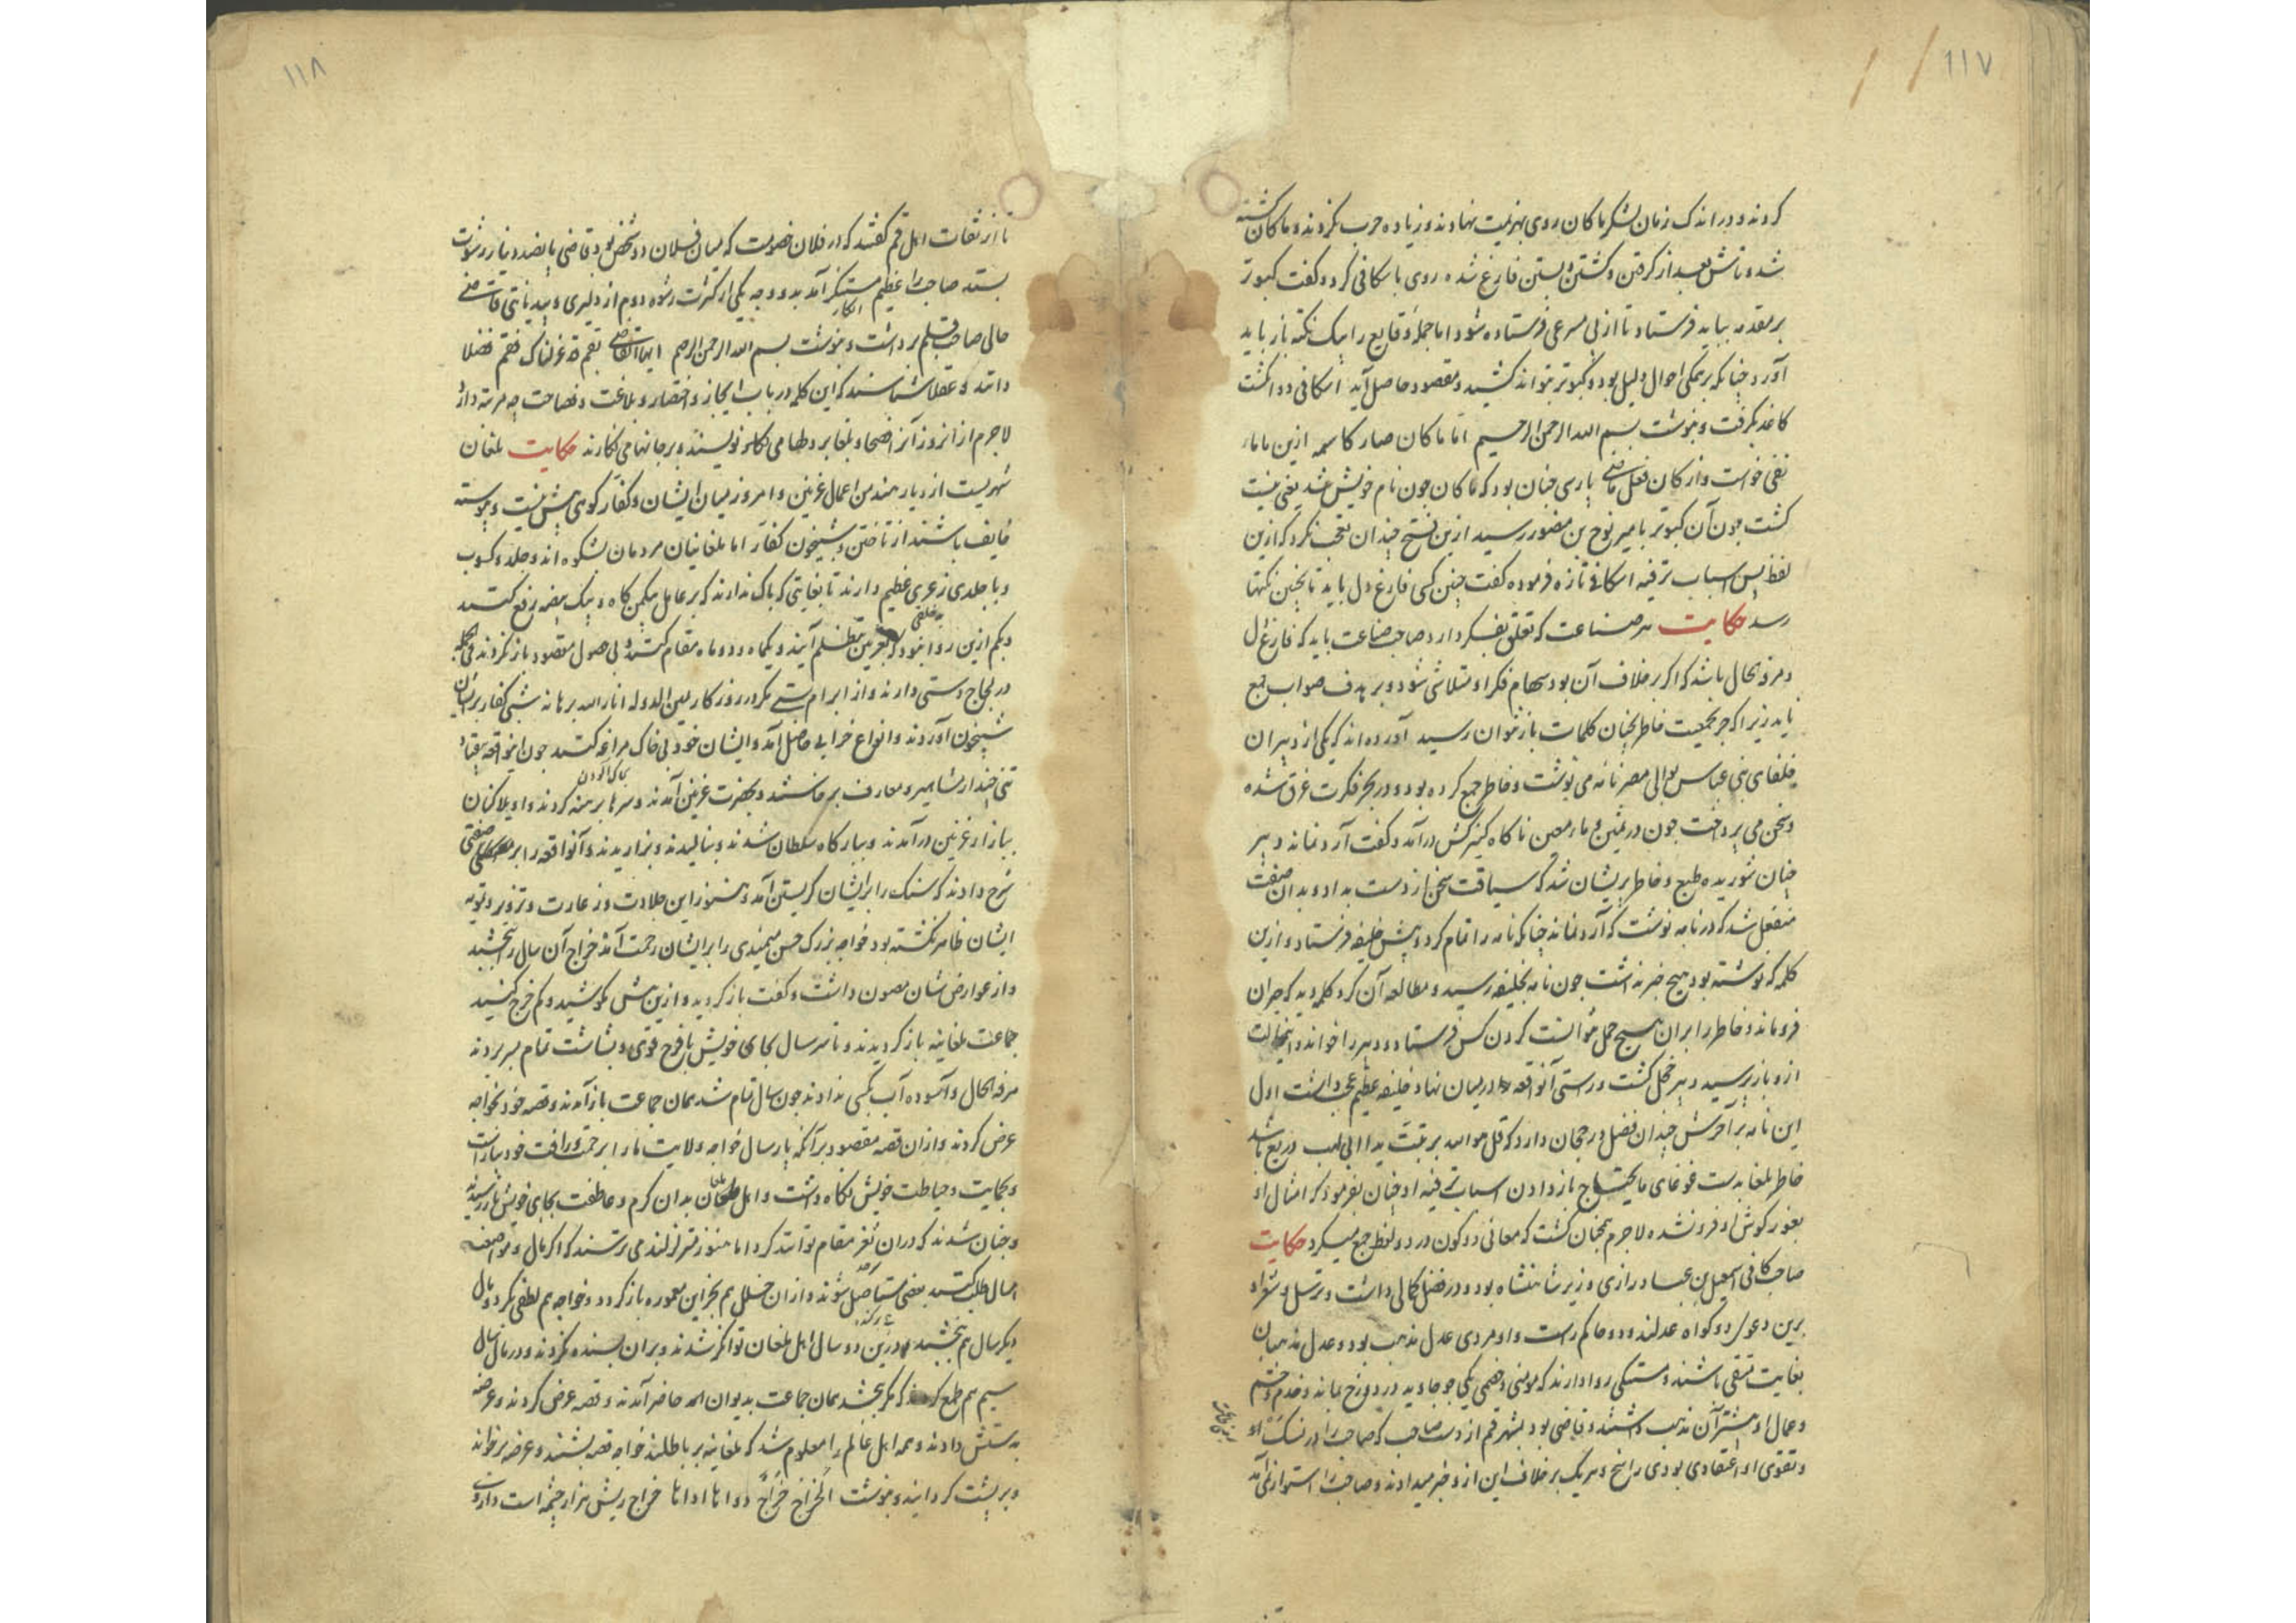 ١١٧
كردند و در اندك زمان لشكر ماكان روى بهزيمت نهادند و زياده حرب نكردند و ماكان كشته
شد و تاش بعد از گرفتن و كشتن و بستن فارغ شده روى باسكافى كرد و گفت كبوتر
بر مقدمه ببايد فرستاد تا از پى مسرعى فرستاده شود اما جمله وقايع را بيك نكته باز بايد
آورد چنانكه بر همگى احوال دليل بود و كبوتر بتواند كشيد و مقصود حاصل آيد اسكافى دو انگشت
كاغذ بگرفت و بنوشت بسم الله الرحمن الرحيم اما ماكان صار كاسمه ازين ما ماء
نفى خواست و از كان فعل ماضى پارسى چنان بود كه ماكان چون نام خويش شد يعنى نيست
گشت چون آن كبوتر بامير نوح بن منصور رسيد ازين فتح چندان تعجب نكرد كه ازين
لفظ پس اسباب ترفيه اسكافى تازه فرموده گفت چنين كسى فارغ دل بايد تا بچنين نكتها
رسد حكايت هر صناعت كه تعلق بتفكر دارد صاحب صناعت بايد كه فارغ دل
و مرفه الحال باشد كه اگر بر خلاف آن بود سهام فكر او متلاشى شود و بر هدف صواب جمع
نايد زيرا كه جز بجمعيت خاطر بچنان كلمات باز نتوان رسيد آورده اند كه يكى از دبيران
خلفاى بنى عباس بوالى مصر نامه مى نوشت و خاطر جمع كرده بود و در بحر فكرت غرق شده
و سخن مى پرداخت چون در ثمين و ماء معين ناگاه كنيزكش درآمد و گفت آرد نماند دبير
چنان شوريده طبع و خاطر پريشان شد كه سياقت سخن از دست بداد و بدان صفت
منفعل شد كه در نامه نوشت كه آرد نماند چنانكه نامه را تمام كرد و پيش خليفه فرستاد و ازين
كلمه كه نوشته بود هيچ خبر نداشت چون نامه بخليفه رسيد و مطالعه آن كرد كلمه ديد كه حيران
فروماند و خاطر را بران هيچ حمل نتوانست كردن كس فرستاد و دبير را خواند و اين حالت
ازو باز پرسيد دبير خجل گشت و راستى آن واقعه در ميان نهاد خليفه عظيم عجب داشت اول
اين نامه بر آخرش چندان فضل و رجحان دارد كه قل هو الله بر تبت يدا ابى لهب دريغ باشد
خاطر بلغا بدست غوغاى مايحتاج باز دادن اسباب ترفيه او چنان بفرمود كه امثال او
بغور گوش او فرو نشد لاجرم همچنان گشت كه معانى دو كون در دو لفظ جمع ميكرد حكايت
صاحب كافى اسمعيل بن عباد رازى وزير شاهنشاه بود و در فضل كمالى داشت و ترسل و شعر او
برين دعوى دو گواه عدلند و دو حاكم راست و او مردى عدل مذهب بود و عدل مذهبان
بغايت متقى باشند و متنسكى روا دارند كه مومنى و خصمى بيكى جو جاويد در دوزخ بماند و خدم و حشم
و عمال او بيشتر آن مذهب داشتند و قاضى بود بشهر قم از دست صاحب كه صاحب را در نسك او
و تقوى او اعتقادى بودى راسخ و هر يك بر خلاف اين ازو خبر ميدادند و صاحب را استوار نمى آمد
١١٨
تا از ثقات اهل قم گفتند كه در فلان خصومت كه ميان فلان دو شخص بود قاضى پانصد دينار رشوت
بسته صاحب را عظيم مستنكر آمد بدو وجه يكى از كثرت رشوه و دوم از دليرى و بيديانتى قاضى
حالى صاحب قلم برداشت و بنوشت بسم الله الرحمن الرحيم ايها القاضى بقم قد عزلناك فقم فضلا
دانند و عقلا شناسند كه اين كلمه در باب ايجاز و اختصار و بلاغت و فصاحت چه مرتبه دارد
لاجرم از آن روز باز فصحا و بلغا بر دلها مى نويسند و بر جانها مى نگارند حكايت لمغان
شهريست از ديار هند من اعمال غزنين و امروز ميان ايشان و كفار كوهى بيش نيست و پيوسته
خايف باشند از تاختن و شبيخون كفار اما لمغانيان مردمان بشكوه اند و جلد و كسوب
و با جلدى زعرى عظيم دارند تا بغايتى كه باك ندارند كه بر عامل بيك من كاه و بيك بيضه رفع كنند
و بكم ازين روا بود كه بغزنين بتظلم آيند و يكماه و دو ماه مقام كنند و بى حصول مقصود باز نگردند فى الجمله
در لجاج دستى دارند و از ابرام پشتى مگر در روزگار يمين الدوله انار الله برهانه شبى كفار بر ايشان
شبيخون آوردند و انواع خرابى حاصل آمد و ايشان خود بى خاك مراغه كنند چون اين واقعه بيفتاد
تنى چند از مشاهير و معارف برخاستند و بحضرت غزنين آمدند و سرها برهنه كردند و واويلا كنان
ببازار غزنين درآمدند و ببارگاه سلطان شدند و بناليدند و بزاريدند و آن واقعه را بر صفتى
شرح دادند كه سنگ را بر ايشان گريستن آمد و هنوز اين جلادت و زعارت و تزوير و تمويه
ايشان ظاهر نگشته بود خواجه بزرگ حسن ميمندى را بر ايشان رحمت آمد خراج آن سال ببخشيد
و از عوارض شان مصون داشت و گفت باز گرديد و ازين بيش كوشيد و كم خرج كنيد
جماعت لمغانيه باز گرديدند و تا سر سال بجاى خويش با فرح قوى و بشاشت تمام بسر بردند
مرفه الحال و آسوده آب بكسى ندادند چون سال تمام شد همان جماعت باز آمدند و قصه خود بخواجه
عرض كردند و ازان قصه مقصود بر آنكه پارسال خواجه ولايت ما را برحمت و رأفت خود بياراست
و بحمايت و حياطت خويش نگاه داشت و اهل لمغان بدان كرم و عاطفت بجاى خويش باز رسيدند
و چنان شدند كه دران ثغر مقام توانند كرد اما هنوز متزلزلند مى ترسند كه اگر مال مواضعت
امسال طلب كنند بعضى مستاصل شوند و ازان خلل هم بخزاين معموره باز گردد خواجه هم لطفى بكرد و مال
ديگر سال هم ببخشيد درين دو سال اهل لمغان توانگر شدند و بران بسنده نكردند و در سال
سيم هم طمع كردند كه مگر بخشد همان جماعت بديوان حاضر آمدند و قصه عرض كردند و عرضه
بدستش دادند و همه اهل عالم را معلوم شد كه لمغانيه بر باطلند خواجه قصه بستد و عرضه برخواند
و بر پشت گردانيد و بنوشت الخراج خراج دواءها اداءها خراج ريش هزار چشمه است داروى